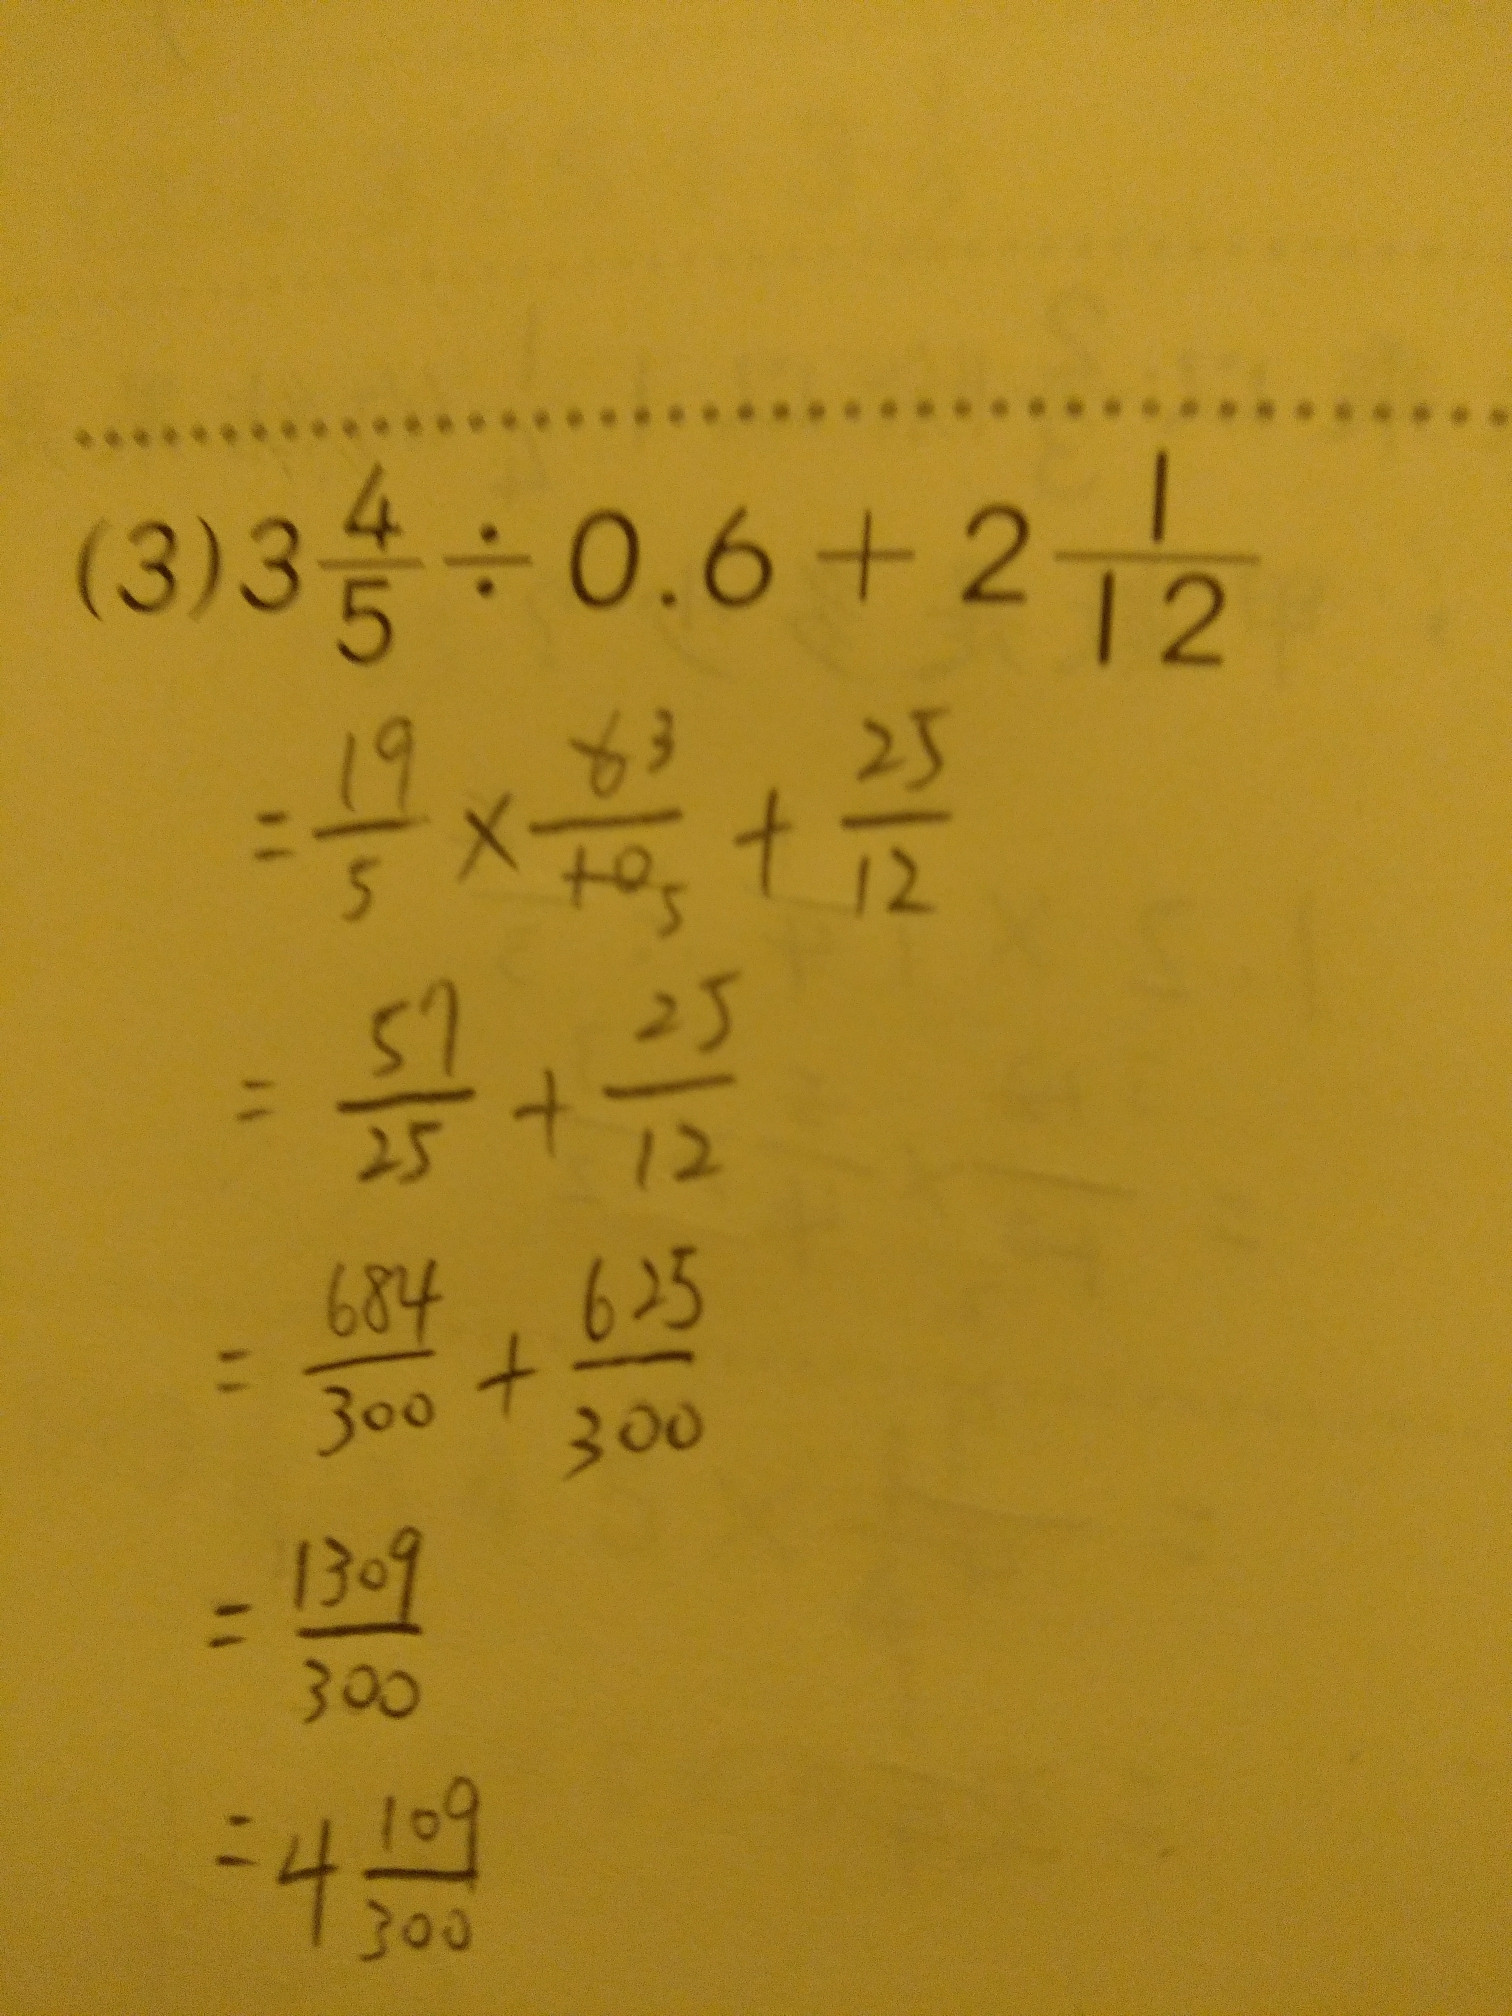 (3) 3 4/5 ÷ 0.6 + 2 1/12
= 19/5 × 6 3/10 5 + 25/12
= 57/25 + 25/12
= 684/300 + 625/300
= 1309/300
= 4 109/300